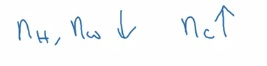 n_H, n_ω ↓ n_c ↑